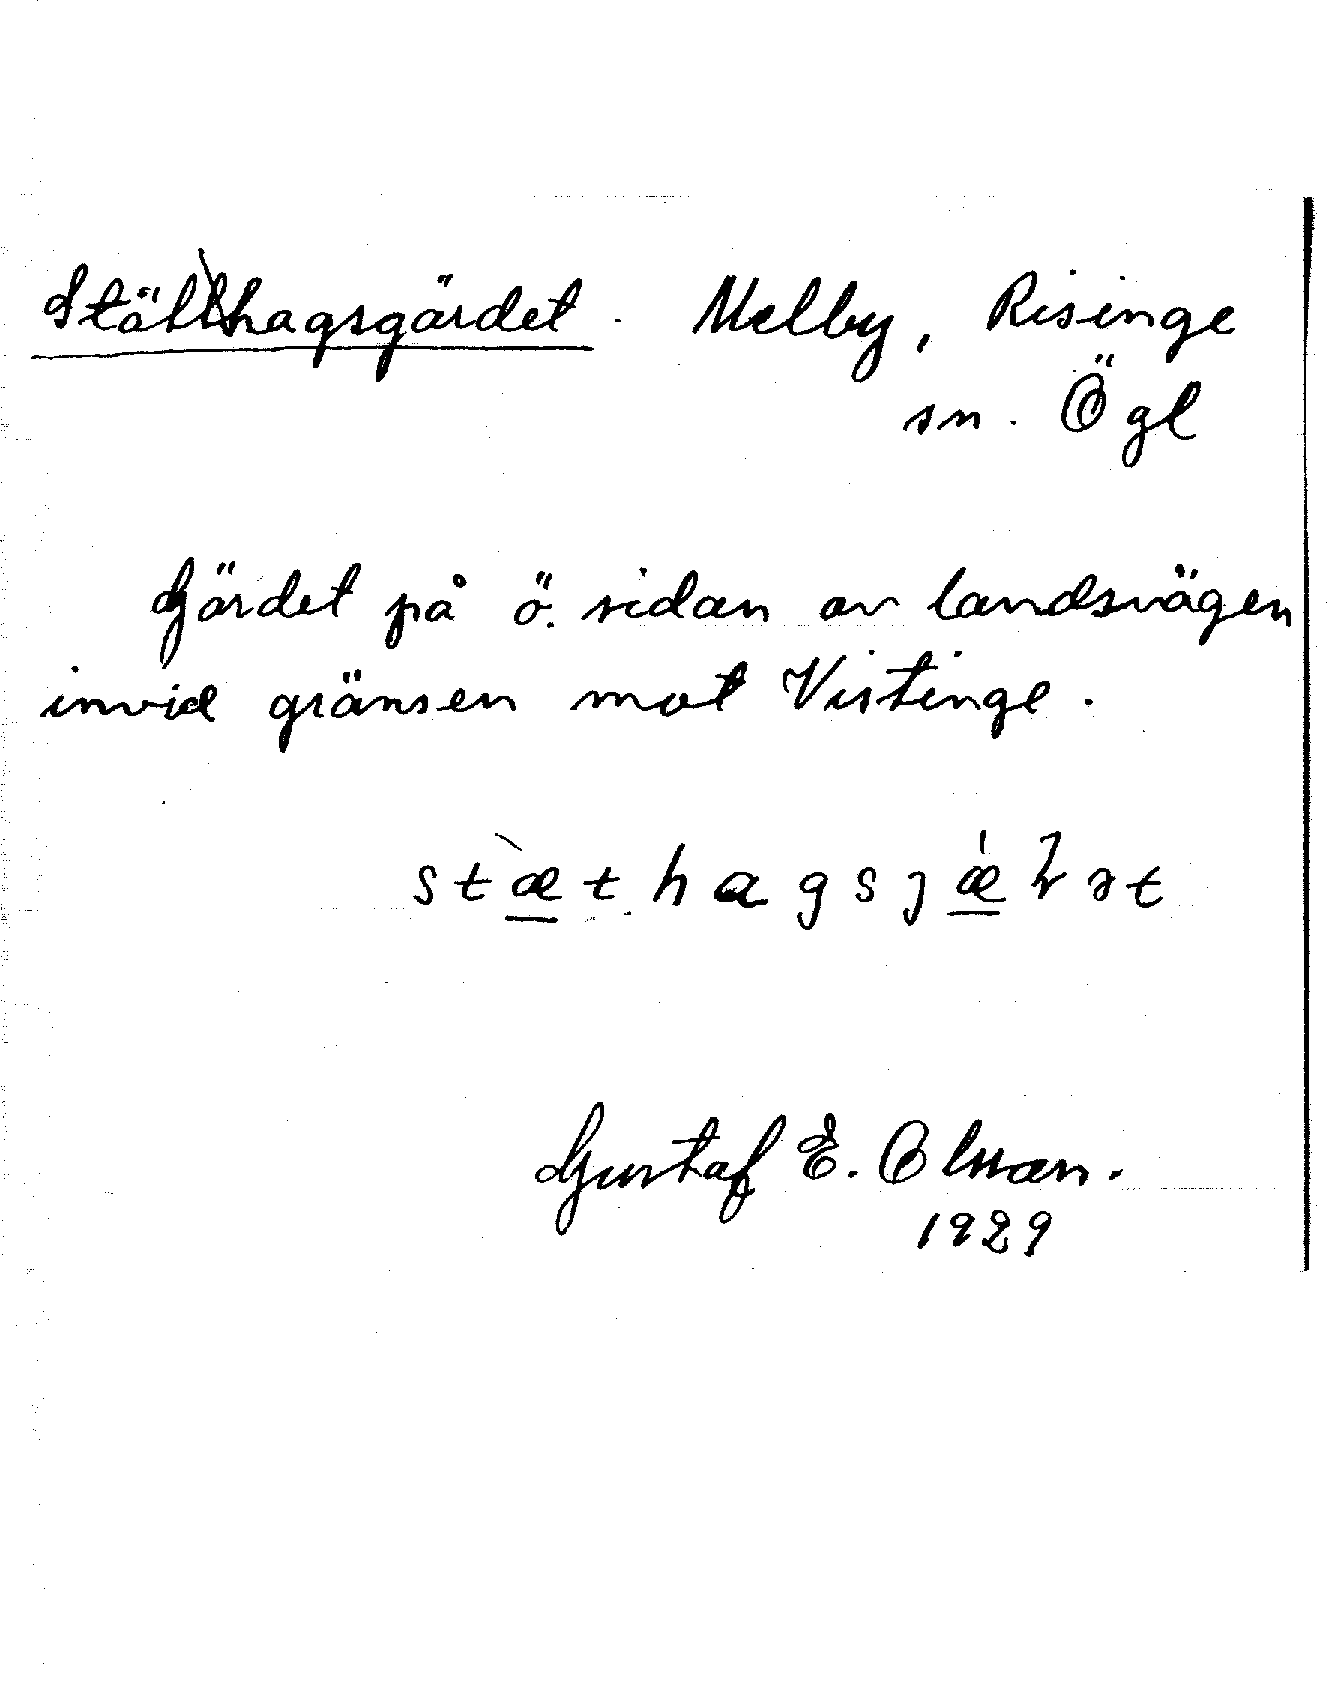 Ställhagsgärdet. Melby, Risinge
sn. Ögl
Gärdet på ö. sidan av landsvägen
invid gränsen mot Vistinge.
Gustaf E. Olman.
1929